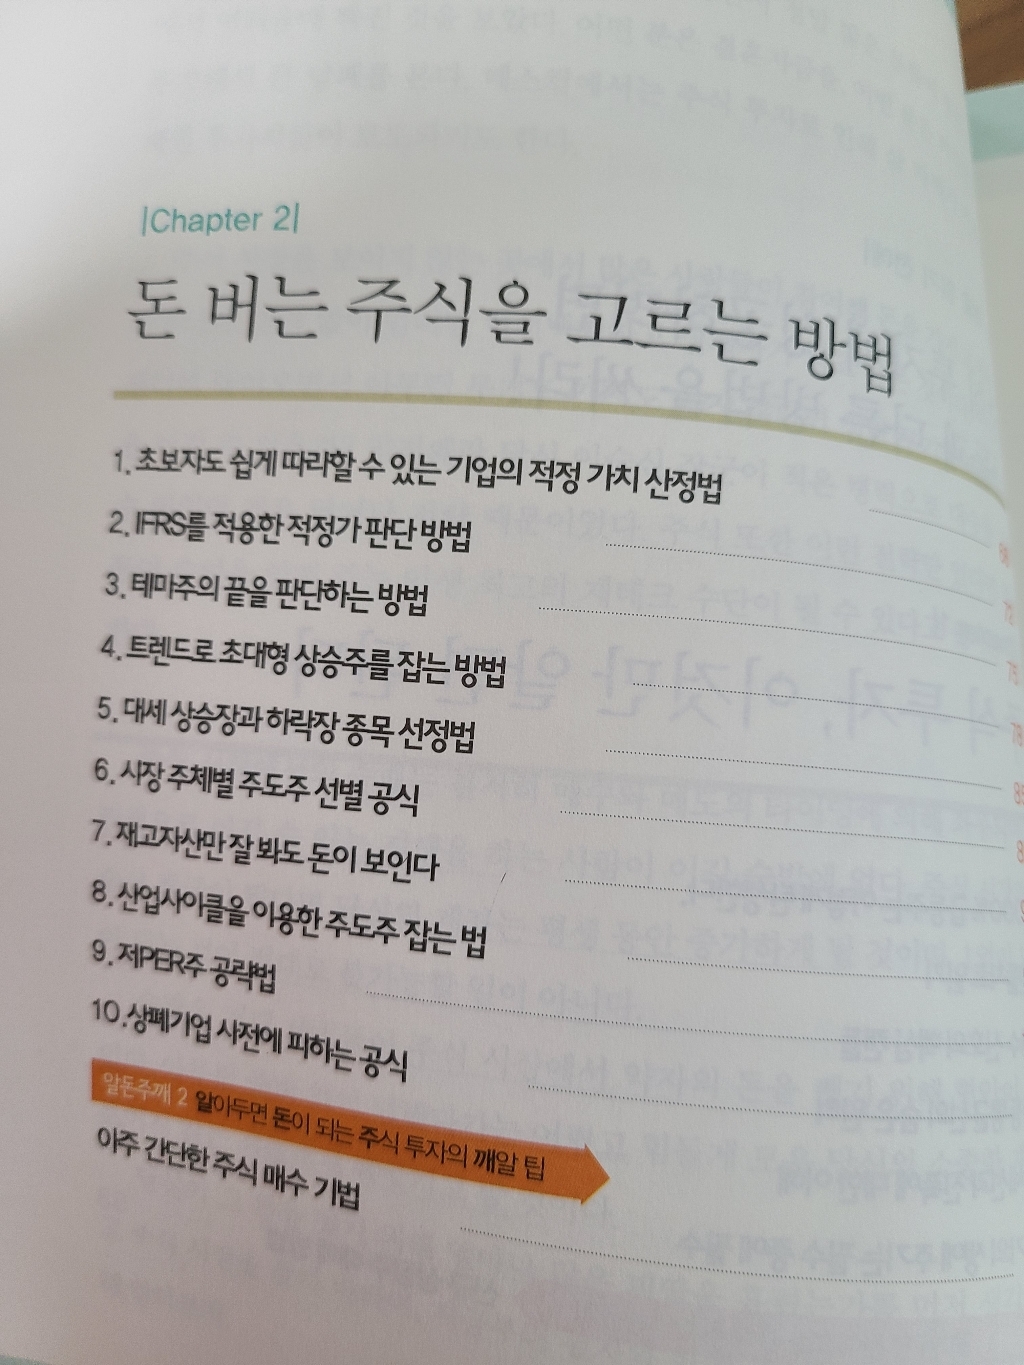 |Chapter 2|
돈 버는 주식을 고르는 방법
1. 초보자도 쉽게 따라할 수 있는 기업의 적정 가치 산정법
2. IFRS를 적용한 적정가 판단 방법
3. 테마주의 끝을 판단하는 방법
4. 트렌드로 초대형 상승주를 잡는 방법
5. 대세 상승장과 하락장 종목 선정법
6. 시장 주체별 주도주 선별 공식
7. 재고자산만 잘 봐도 돈이 보인다
8. 산업사이클을 이용한 주도주 잡는 법
9. 저PER주 공략법
10. 상폐기업 사전에 피하는 공식
알돈주깨 2 알아두면 돈이 되는 주식 투자의 깨알 팁
아주 간단한 주식 매수 기법